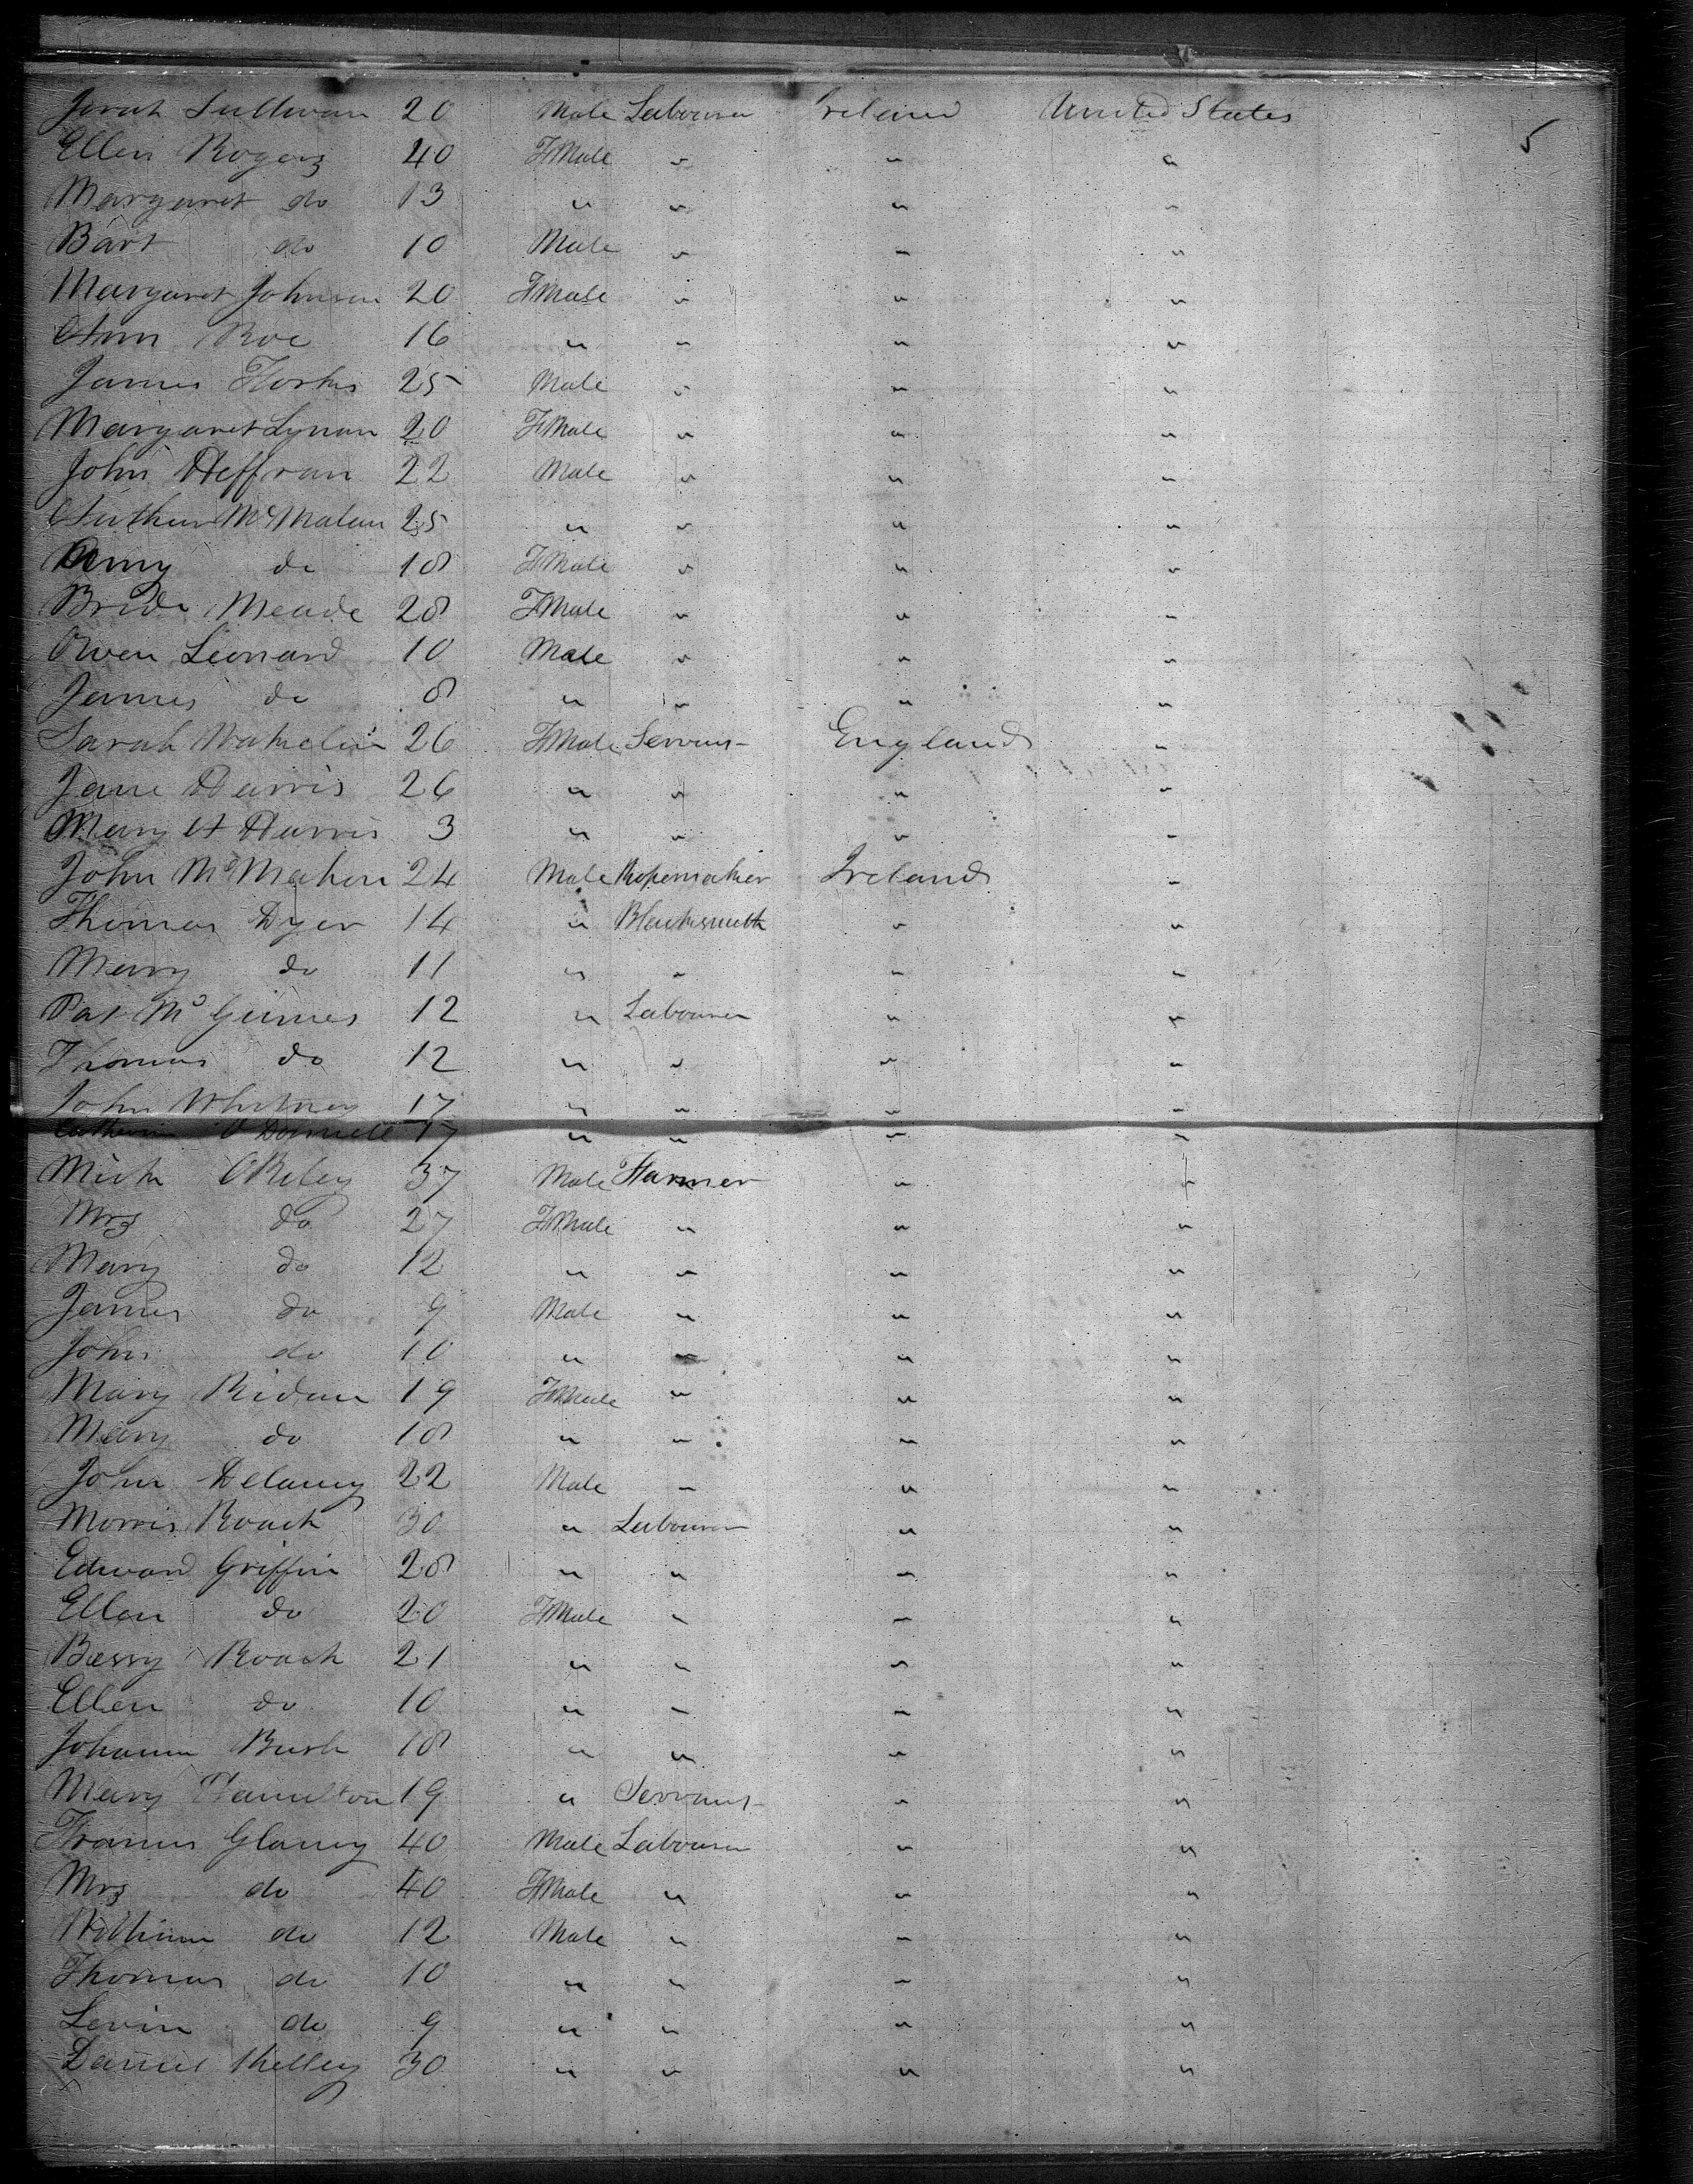 Sullivan 20 Male Labourer Ireland United States
5
Ellen Rogers 40 FMale " " "
Margaret do 13 " " " "
Bart do 10 Male " " "
Margaret Johnson 20 FMale " " "
Ann Roe 16 " " " "
James 25 Male " " "
Margaret Lynan 20 FMale " " "
John Heffran 22 Male " " "
25 " " " "
Amy do 18 FMale " " "
Bridt Meade 28 FMale " " "
Owen Leonard 10 Male " " "
James do 8 " " " "
Sarah 26 FMale Servant England "
Jane Harris 26 " " " "
Mary A Harris 3 " " " "
John McMahon 24 Male Ropemaker Ireland "
Thomas Dyer 14 " Blacksmith " "
Mary do 11 " " " "
Pat McGuines 12 " Labourer " "
Thomas do 12 " " " "
John Whitney 17 " " " "
Catherine O Donnell 17 " " " "
Mich ORiley 37 Male Farmer " "
Mrs do 27 FMale " " "
Mary do 12 " " " "
James do 9 Male " " "
John do 10 " " " "
Mary Ridan 19 FMale " " "
Mary do 18 " " " "
John Delaney 22 Male " " "
Morris Roach 30 " Labourer " "
Edward Griffin 28 " " " "
Ellen do 20 FMale " " "
Bessy Roach 21 " " " "
Ellen do 10 " " " "
Johanna Bush 18 " " " "
Mary Hamilton 19 " Servant " "
Francis Glancy 40 Male Labourer " "
Mrs do 40 FMale " " "
William do 12 Male " " "
Thomas do 10 " " " "
Levin do 9 " " " "
Daniel Kelley 30 " " " "